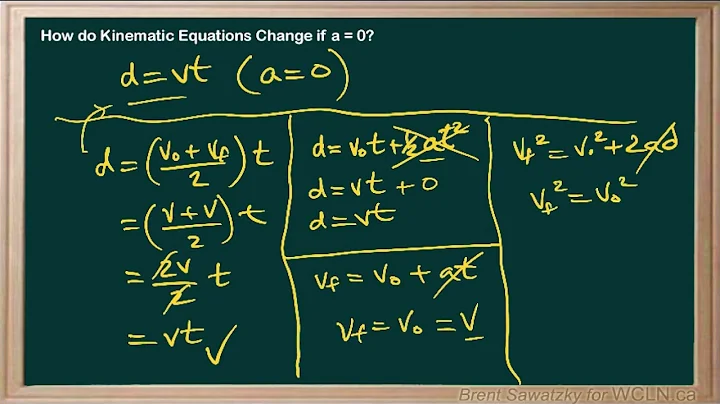 How do Kinematic Equations Change if a = 0?
d = vt (a = 0)
d = (v₀ + v_f / 2) t
= (v + v / 2) t
= 2v / 2 t
= vt ✓
d = v₀t + ½at²
d = vt + 0
d = vt
v_f = v₀ + at
v_f = v₀ = v
v_f² = v₀² + 2ad
v_f² = v₀²
Brent Sawatzky for WCLN.ca